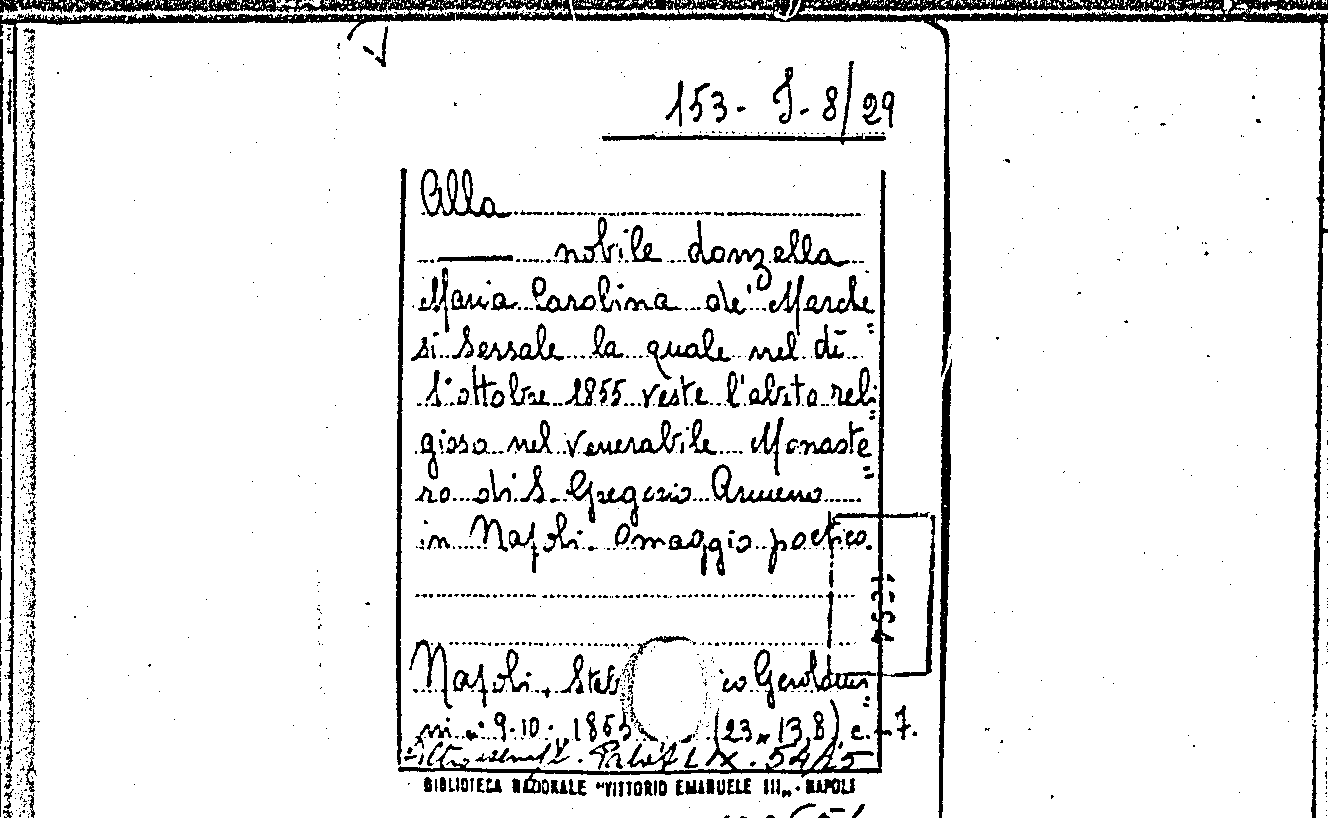 153- J- 8/29
Alla
nobile donzella
Maria Carolina de' Marche=
si Sersale la quale nel dì
1° ottobre 1855 veste l'abito reli=
gioso nel venerabile Monaste=
ro di S. Gregorio Armeno
in Napoli. Omaggio poetico.
Napoli, Geroldini=
9-10. (23x13,8), c. 7.
BIBLIOTECA NAZIONALE "VITTORIO EMANUELE III„ - NAPOLI